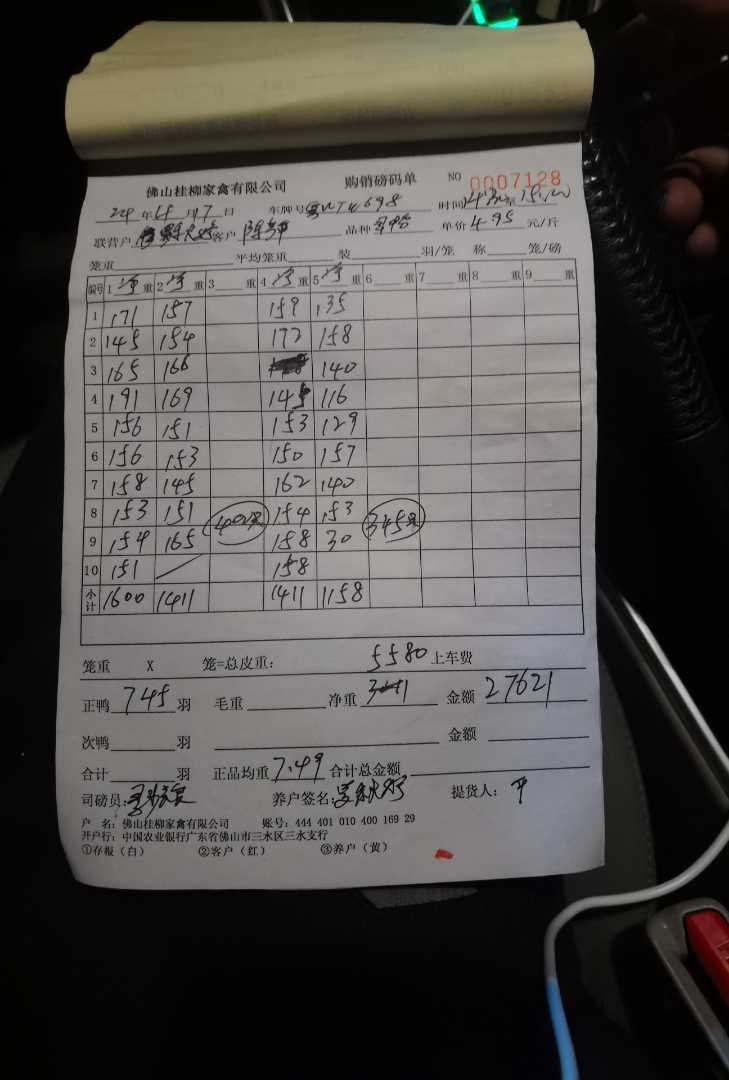 佛山桂柳家禽有限公司 购销磅码单 NO 0007128
24年4月7日 车牌号 时间
联营户 客户 陈 品种 单价4.95元/斤
笼重 平均笼重 装 羽/笼 称 笼/磅
编号 1净重 2净重 3 重 4净重 5净重 6 重 7 重 8 重 9 重
1 171 157 159 135
2 145 154 172 158
3 165 166 140
4 191 169 145 116
5 156 151 153 129
6 156 153 150 157
7 158 145 162 140
8 153 151 154 153
9 154 165 158 30
10 151 158
小计 1600 1411 1411 1158
笼重 X 笼=总皮重: 5580 上车费
正鸭 745 羽 毛重 净重 金额 27621
次鸭 羽 金额
合计 羽 正品均重 7.49 合计总金额
司磅员: 养户签名: 提货人: 平
户 名: 佛山桂柳家禽有限公司 账号: 444 401 010 400 169 29
开户行: 中国农业银行广东省佛山市三水区三水支行
①存根(白) ②客户(红) ③养户(黄)